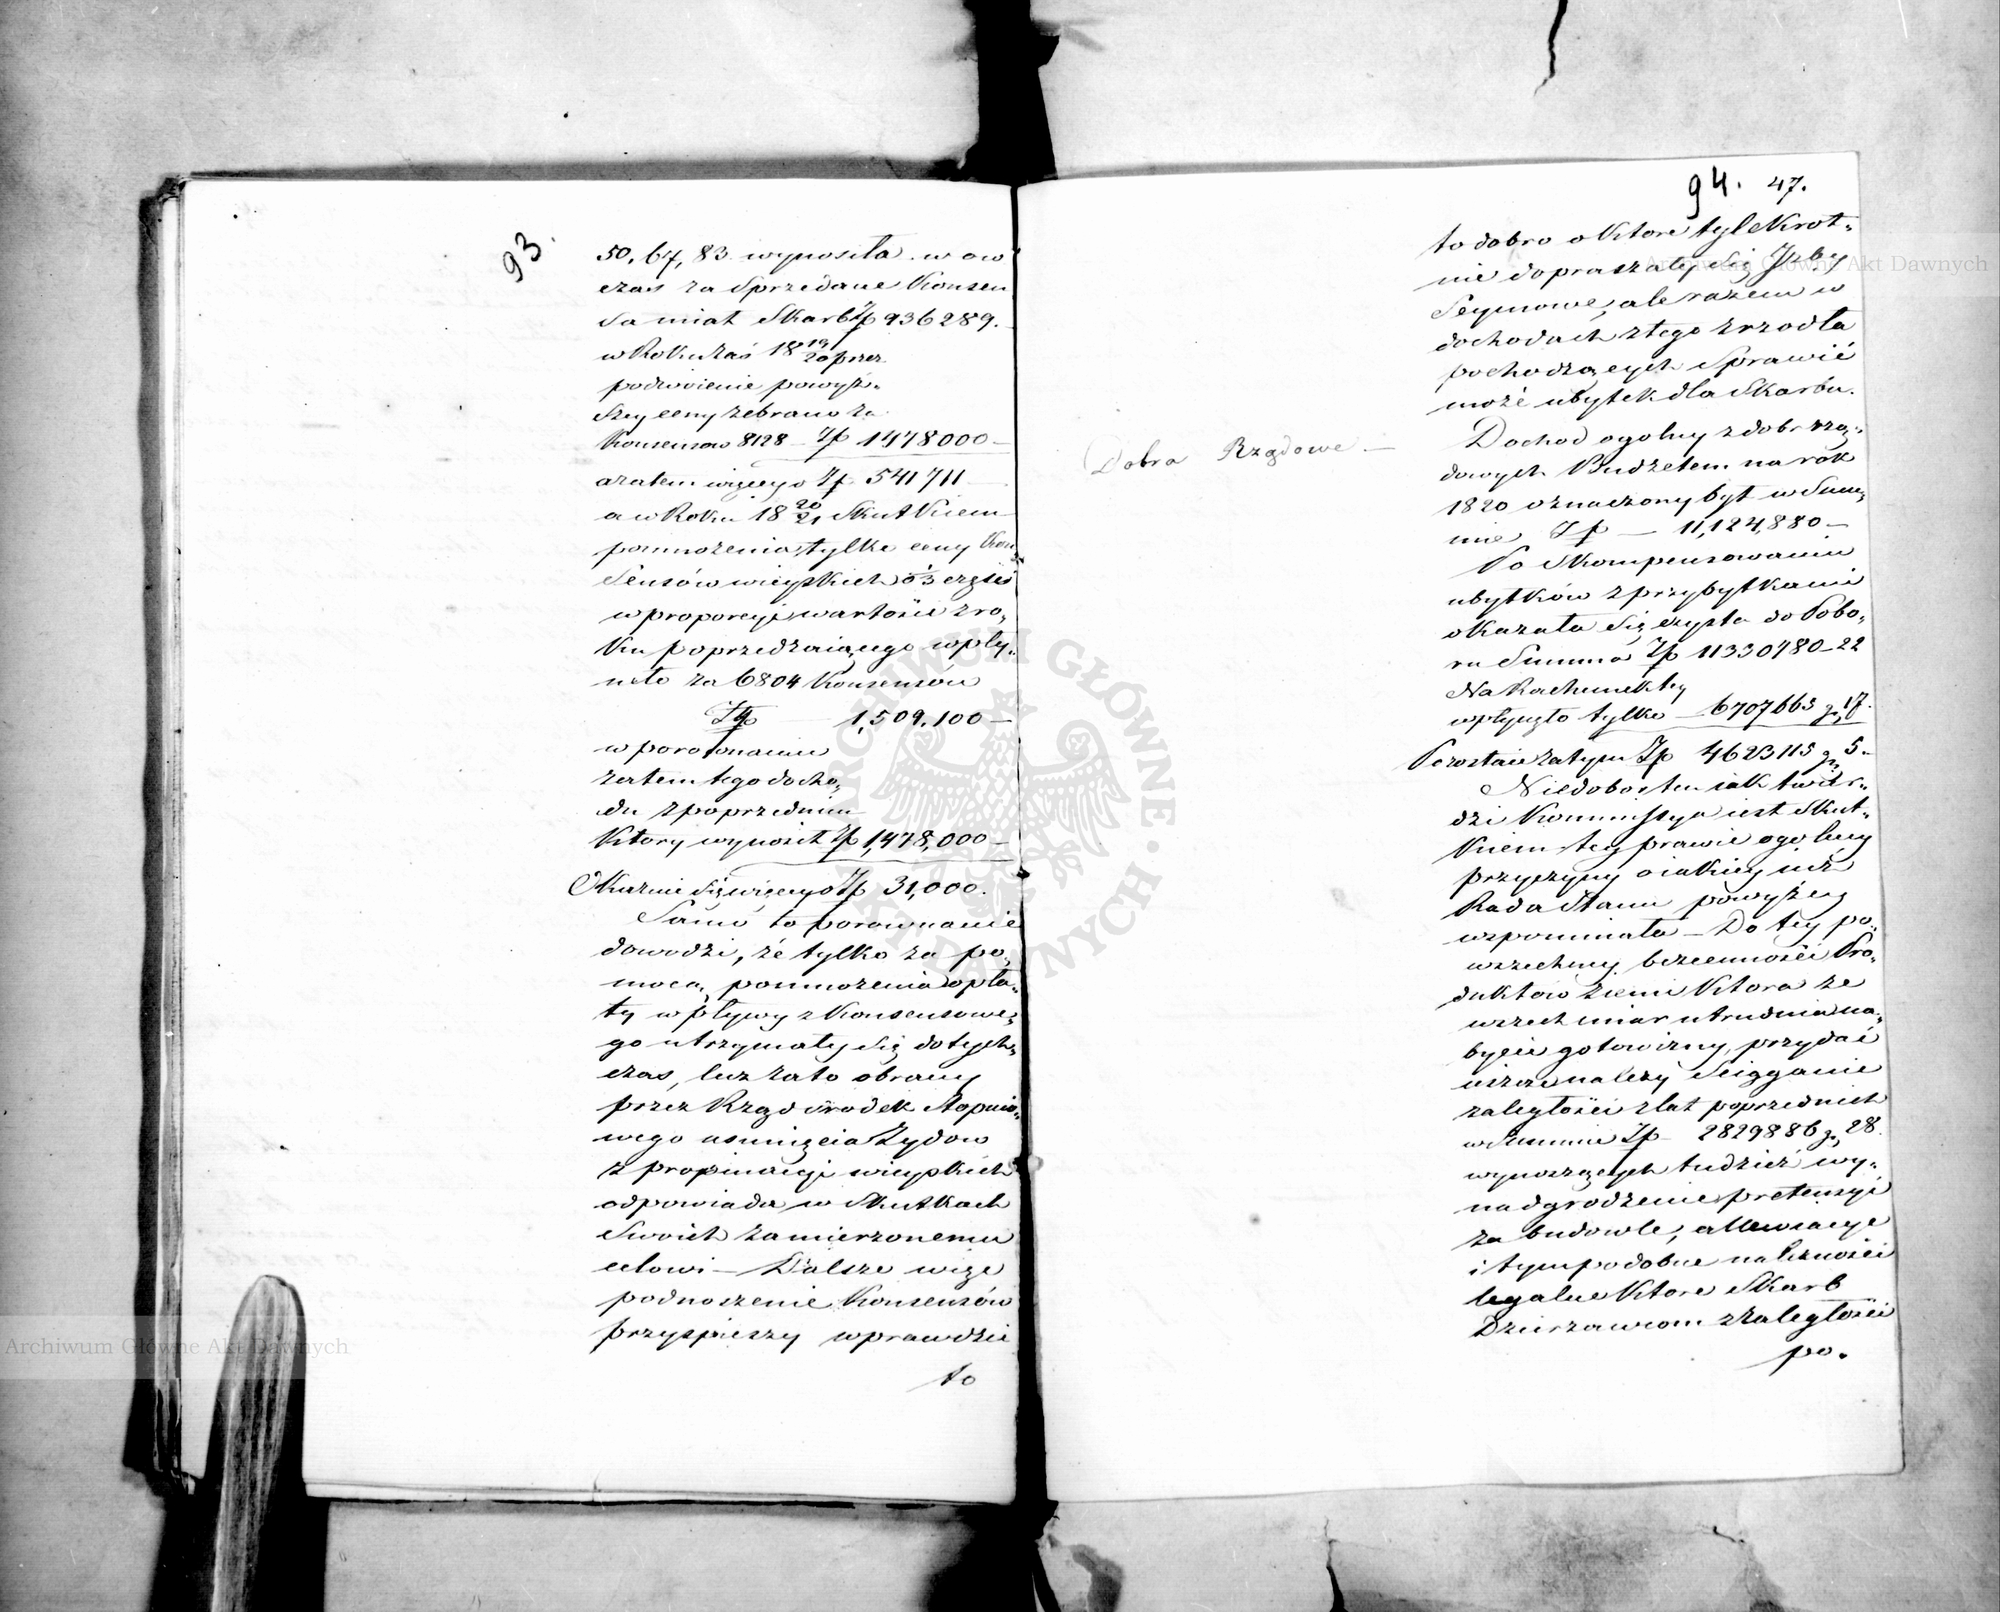 93.
50, 67, 83 wynosiła w ow
czas za Sprzedane Konsen
sa miał Skarb Zp 936289.
w Roku zaś 18 19/20 przez
podwoienie powyż„
szey ceny zebrano za
Konsensow 8128 — Zp 1478000 —
a zatem więcey o Zp 541711 —
a w Roku 18 20/21 Skutkiem
pomnożenia tylko ceny Kon„
sensów wieyskich o 1/3 część
w proporcyi wartości z ro„
ku poprzedzaiącego wpły„
neło za 6804 Konsensów
Zp — 1,509,100 —
w porównaniu
zatem tego docho„
du z poprzednim
który wynosił Zp 1,478,000 —
Okazuie się więcey o Zp 31,000.
Samo to porownanie
dowodzi, że tylko za po„
mocą pomnożenia opła„
ty wpływy z Konsensowe„
go utrzymały się dotych„
czas, lecz zato obrany
przez Rząd środek stopnio„
wego usunięcia Żydow
z propinacyi wieyskich
odpowiada w Skutkach
Swoich zamierzonemu
celowi — Dalsze więc
podnoszenie Konsensów
przyspieszy wprawdzie
to
94. 47.
to dobro o które tylekrot„
nie dopraszały się Jzby
Seymowe, ale razem w
dochodach z tego zrzodła
pochodzących Sprawić
może ubytek dla Skarbu.
Dobra Rządowe. —
Dochod ogolny z dobr rzą„
dowych Budżetem na rok
1820 oznaczony był w Sum„
mie Zp — 11,124,880 —
Po Skompensowaniu
ubytków z przybytkami
okazała się czysta do Pobo„
ru Summa Zp 11330780 — 22
Na Rachunek tey
wpłynęło tylko — 6707665 g. 17.
Pozostaie zatym Zp 4623115 g. 5.
Niedobor ten iak twier„
dzi Kommissya iest Skut„
kiem tey prawie ogolney
przyczyny o iakiey iuż
Rada Stanu powyżey
wspomniała — Do tey po„
wszechney bezcenności Pro„
duktow ziemi która ze
wszech miar utrudnia na„
bycie gotowizny, przydać
ieszcze należy Sciąganie
zaległości z lat poprzednich
w Summie Zp — 2829886 g. 28.
wynoszących tudzież wy„
nadgrodzenie pretensyi
za budowle, allewiacye
i tym podobne należności
legalne które Skarb
Dzierzawcom z zaległości
po.
Archiwum Główne Akt Dawnych
Archiwum Główne Akt Dawnych
ARCHIWUM GŁÓWNE AKT DAWNYCH